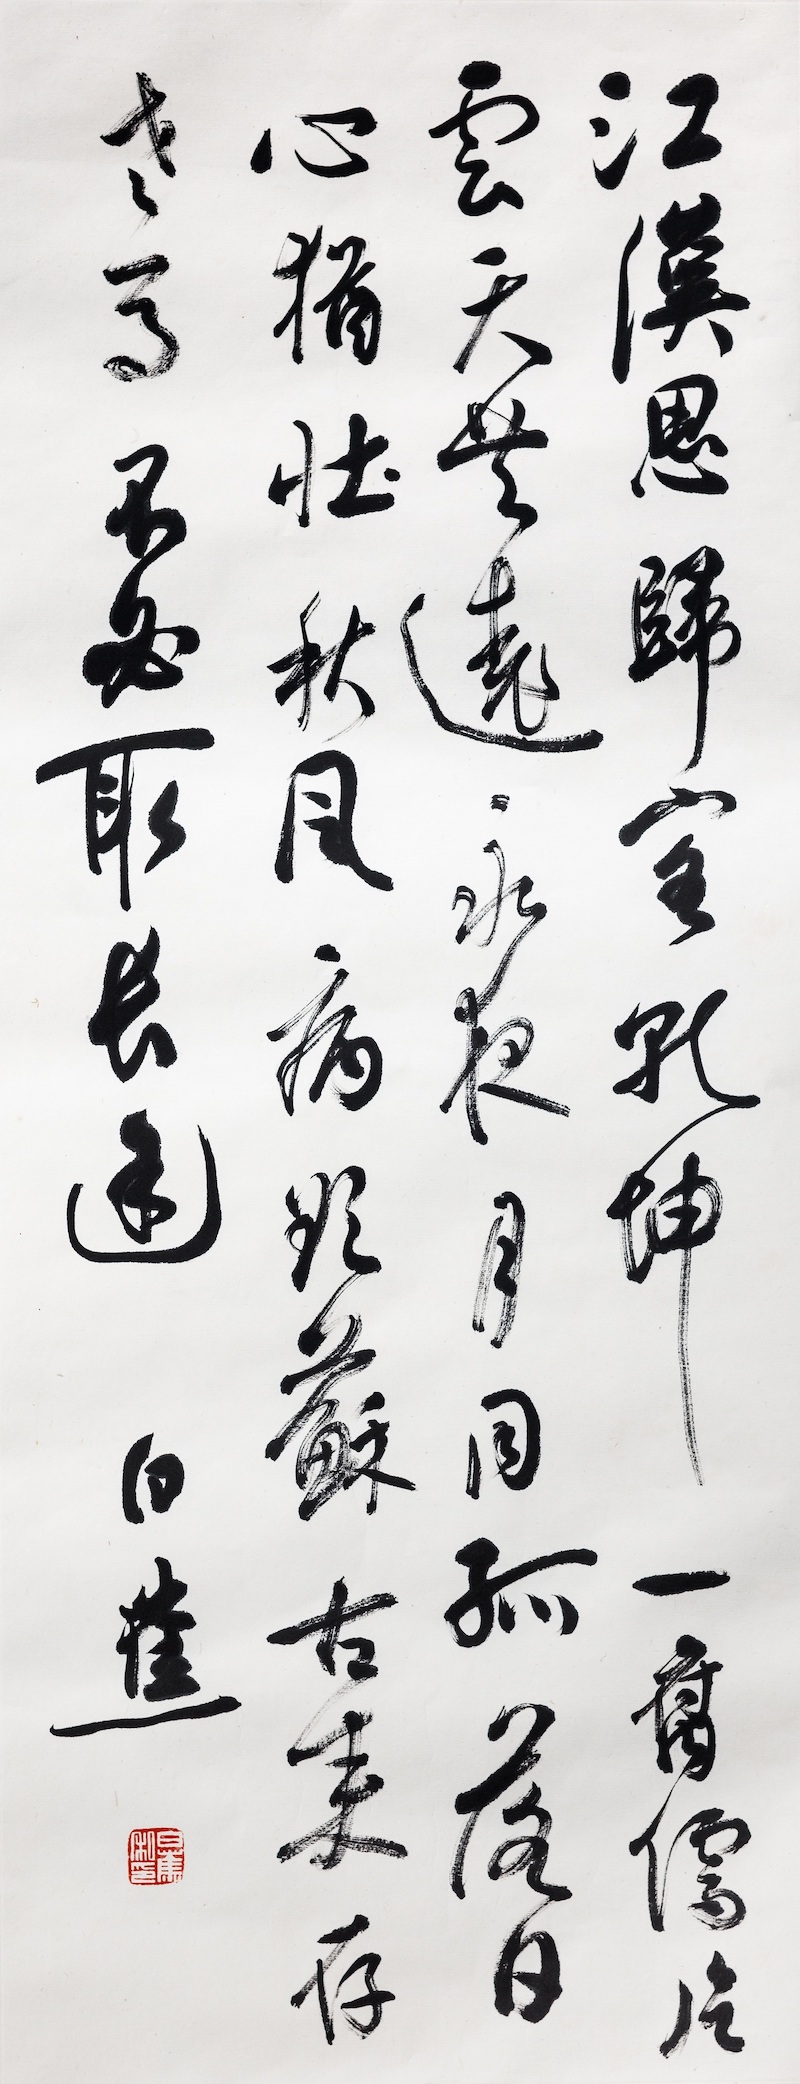 江漢思歸客乾坤一腐儒片
雲天共遠永夜月同孤落日
心猶壯秋風病欲蘇古來存
老馬不必取長途
白蕉
白蕉私印